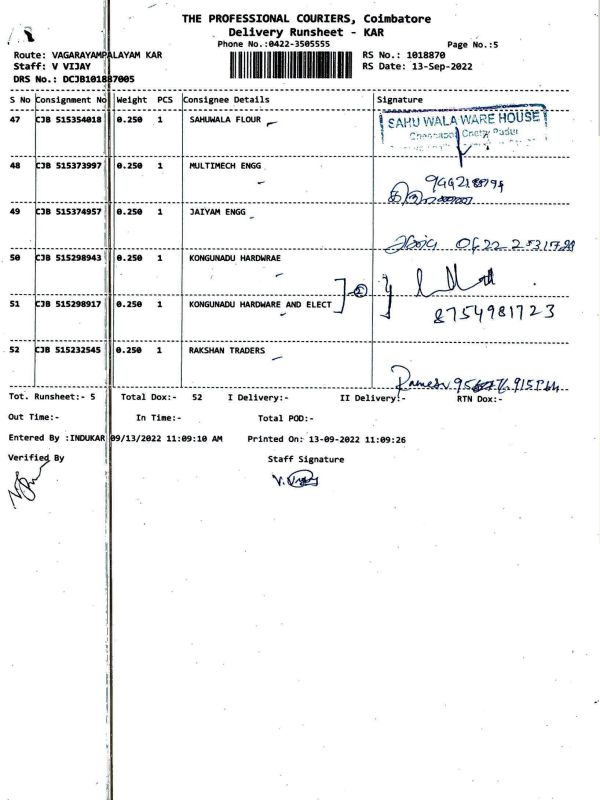 THE PROFESSIONAL COURIERS, Coimbatore
Delivery Runsheet - KAR
Phone No.:0422-3505555
Page No.:5
Route: VAGARAYAMPALAYAM KAR
RS No.: 1018870
Staff: V VIJAY
RS Date: 13-Sep-2022
DRS No.: DCJB101887005
S No Consignment No Weight PCS Consignee Details Signature
47 CJB 515354018 0.250 1 SAHUWALA FLOUR
SAHU WALA WARE HOUSE
48 CJB 515373997 0.250 1 MULTIMECH ENGG
49 CJB 515374957 0.250 1 JAIYAM ENGG
0422
50 CJB 515298943 0.250 1 KONGUNADU HARDWRAE
2
51 CJB 515298917 0.250 1 KONGUNADU HARDWARE AND ELECT
8754981723
52 CJB 515232545 0.250 1 RAKSHAN TRADERS
Ramesh
Tot. Runsheet:- 5 Total Dox:- 52 I Delivery:- II Delivery:- RTN Dox:-
Out Time:- In Time:- Total POD:-
Entered By :INDUKAR 09/13/2022 11:09:10 AM Printed On: 13-09-2022 11:09:26
Verified By Staff Signature